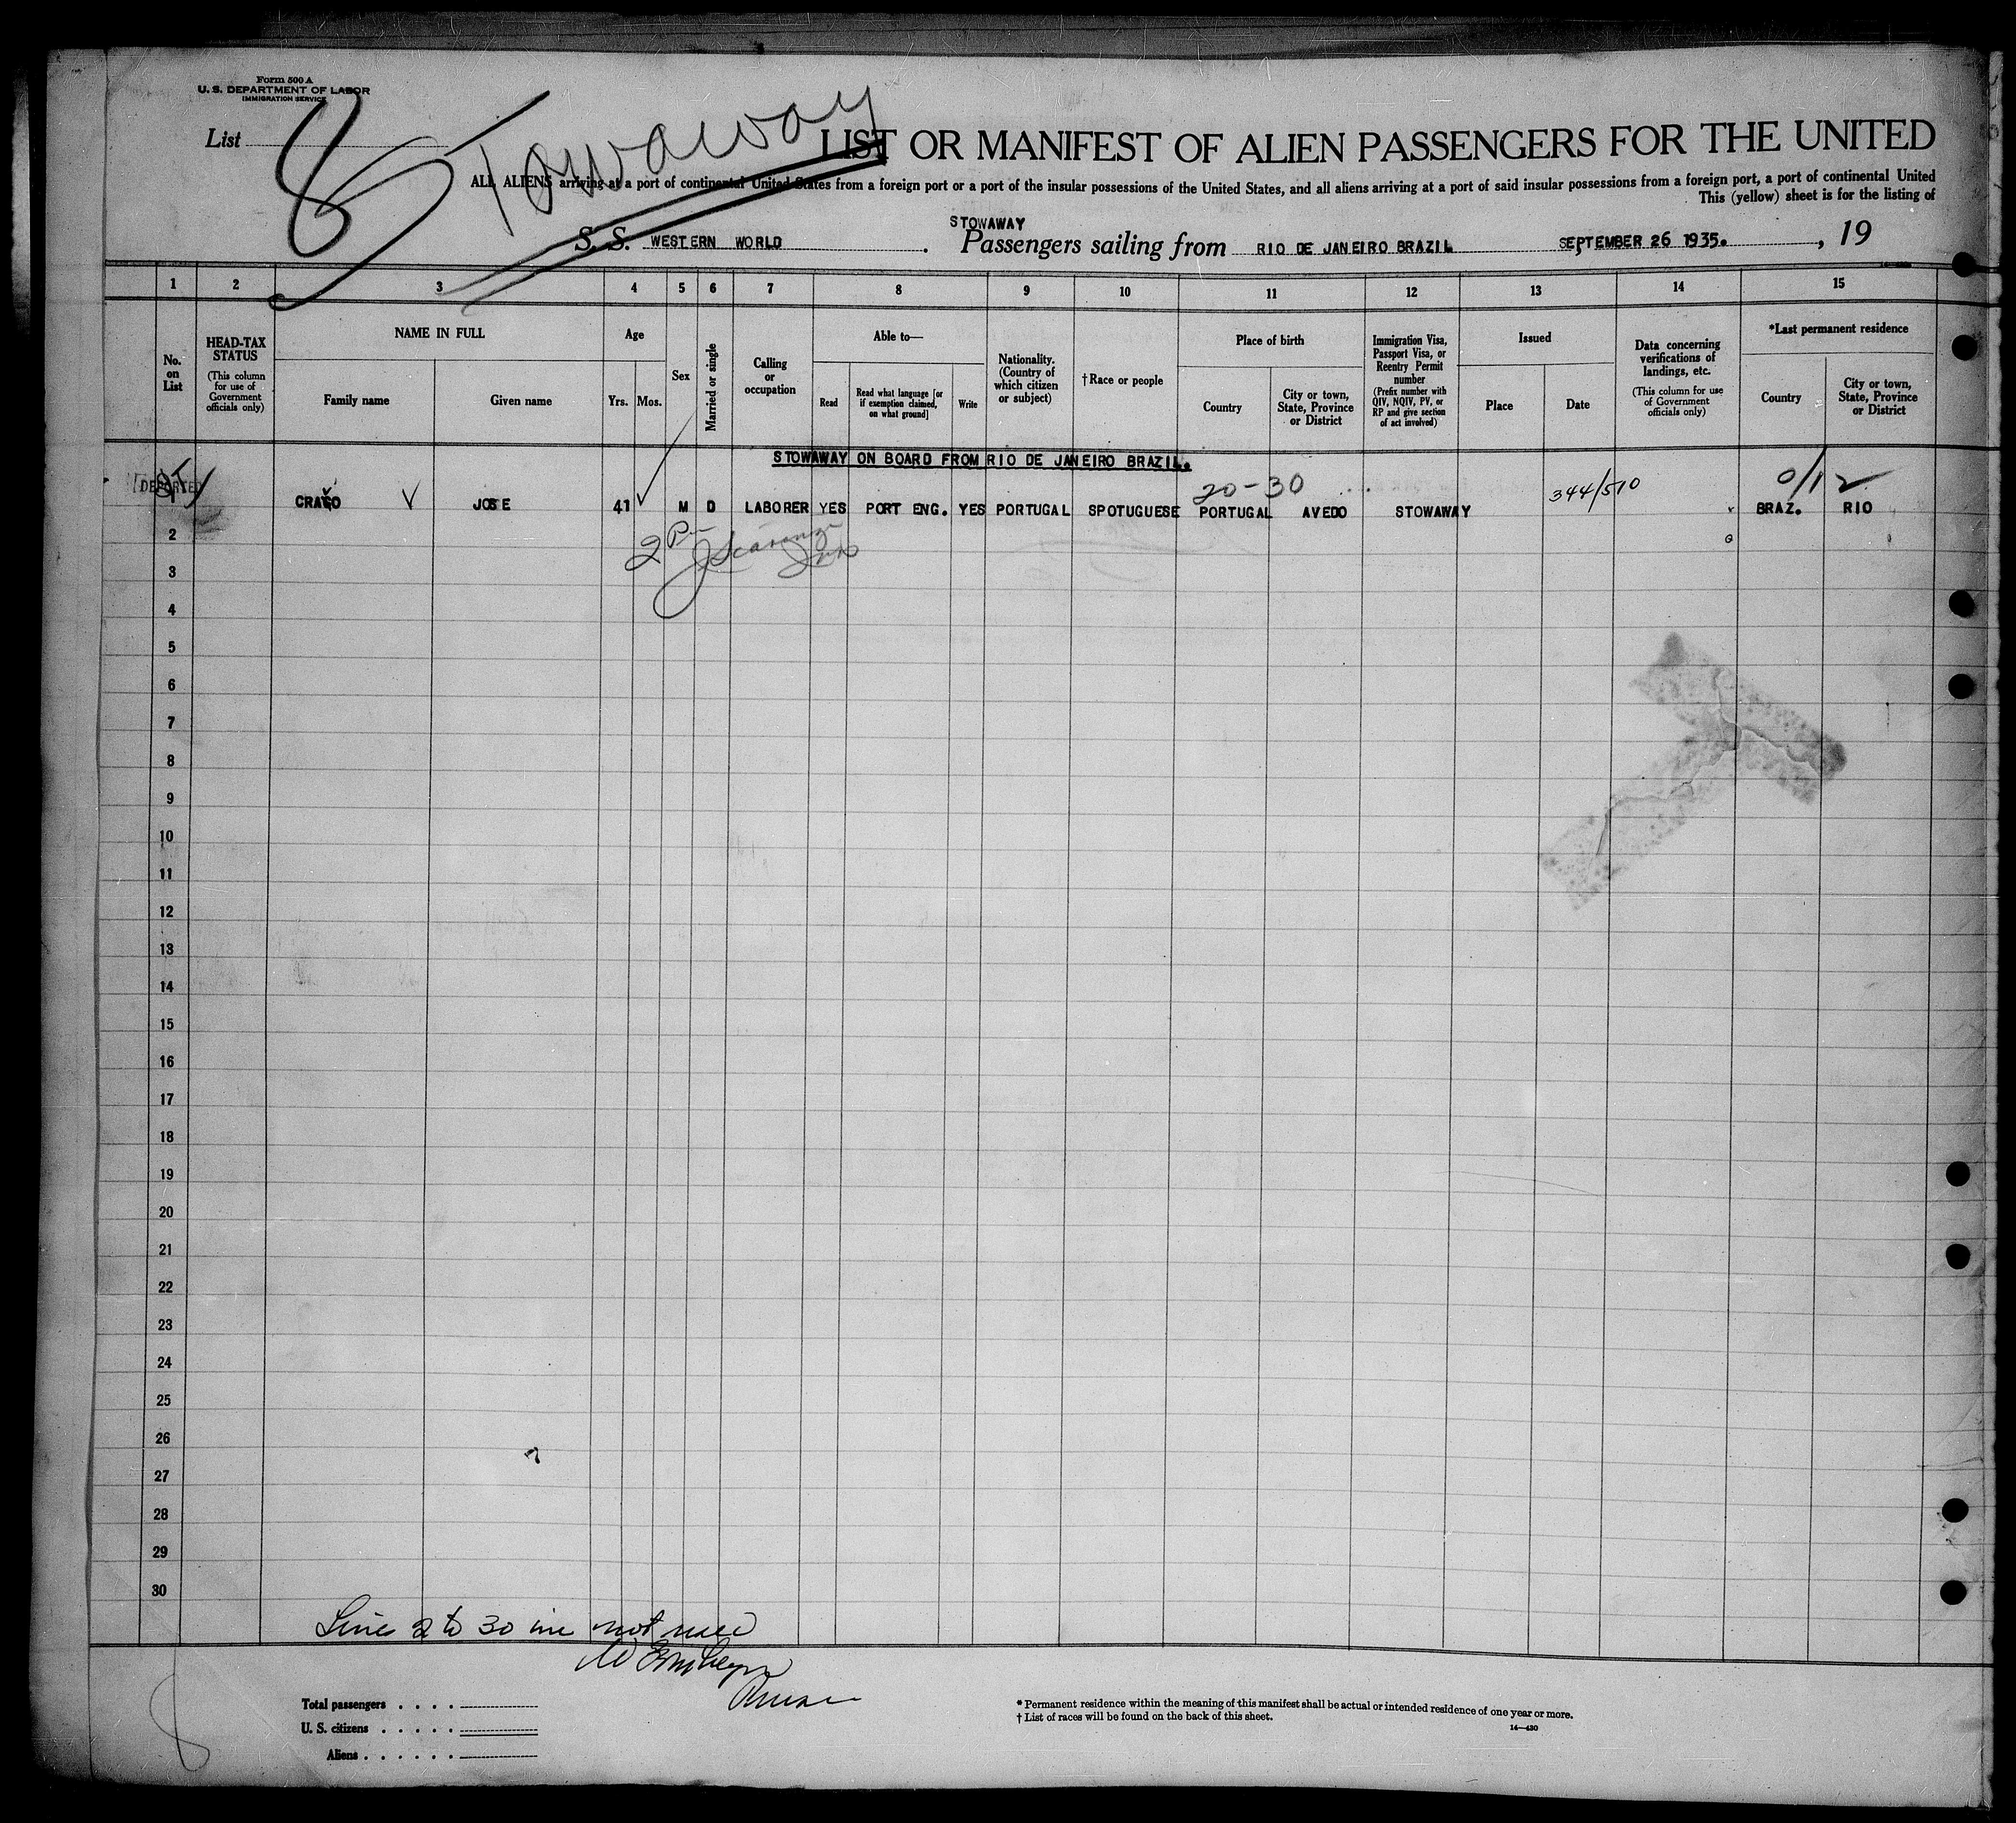 Form 500 A
U. S. DEPARTMENT OF LABOR
IMMIGRATION SERVICE
List 8
Stowaway
LIST OR MANIFEST OF ALIEN PASSENGERS FOR THE UNITED
ALL ALIENS arriving at a port of continental United States from a foreign port or a port of the insular possessions of the United States, and all aliens arriving at a port of said insular possessions from a foreign port, a port of continental United
This (yellow) sheet is for the listing of
STOWAWAY
S. S. WESTERN WORLD . Passengers sailing from RIO DE JANEIRO BRAZIL SEPTEMBER 26 1935. , 19
1 2 3 4 5 6 7 8 9 10 11 12 13 14 15
No. on List
HEAD-TAX STATUS
(This column for use of Government officials only)
NAME IN FULL
Family name
Given name
Age
Yrs. Mos.
Sex
Married or single
Calling or occupation
Able to—
Read
Read what language [or if exemption claimed, on what ground]
Write
Nationality. (Country of which citizen or subject)
†Race or people
Place of birth
Country
City or town, State, Province or District
Immigration Visa, Passport Visa, or Reentry Permit number
(Prefix number with QIV, NQIV, PV, or RP and give section of act involved)
Issued
Place
Date
Data concerning verifications of landings, etc.
(This column for use of Government officials only)
*Last permanent residence
Country
City or town, State, Province or District
STOWAWAY ON BOARD FROM RIO DE JANEIRO BRAZIL.
DEPORTED
20-30
344/510
0/12
1 JOSE 41 M D LABORER YES PORT ENG. YES PORTUGAL SPOTUGUESE PORTUGAL AVEDO STOWAWAY BRAZ. RIO
2
3
4
5
6
7
8
9
10
11
12
13
14
15
16
17
18
19
20
21
22
23
24
25
26
27
28
29
30
Lines 2 to 30 inc not used
Total passengers . . . .
U. S. citizens . . . . .
Aliens . . . . . .
* Permanent residence within the meaning of this manifest shall be actual or intended residence of one year or more.
† List of races will be found on the back of this sheet.
14—430